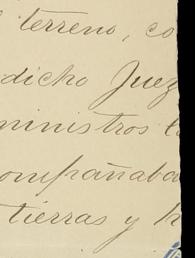 terreno, co
dicho Juez
ministros t
ompañaba
tierras y h